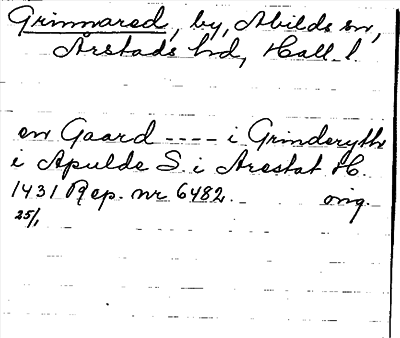 Grimmared, by, Abilds sn,
Årstads hd, Hall. l.
en Gaard ---- i Grinderyth
i Apulde S. i Arestat H.
1431 Rep. nr 6482. orig.
25/1